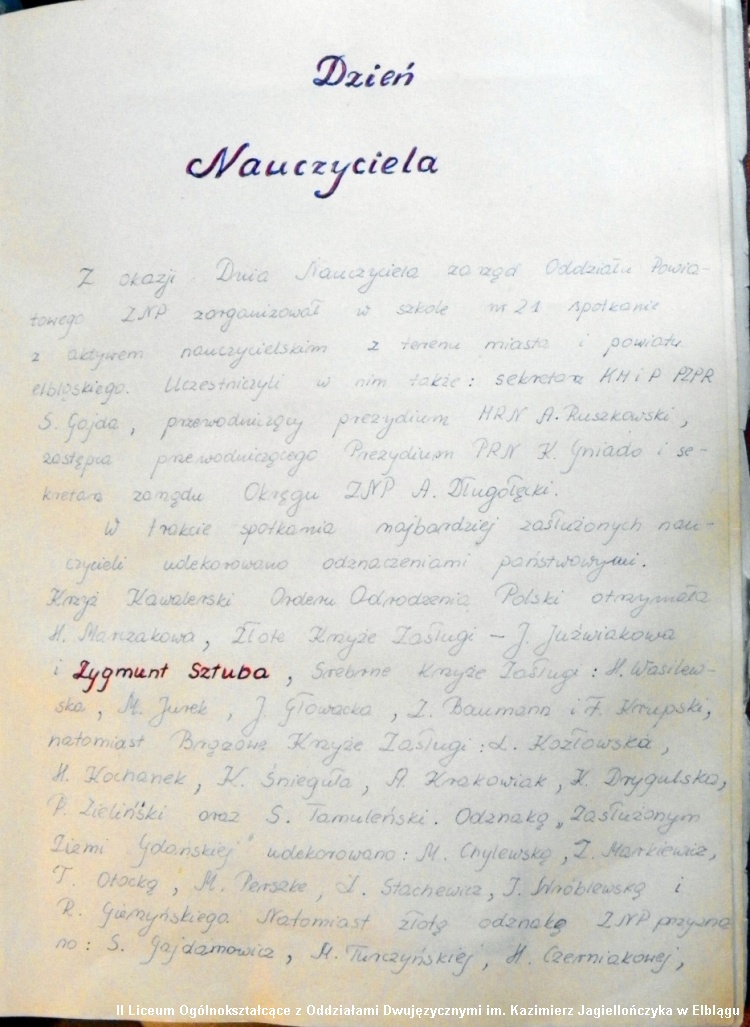 Dzień
Nauczyciela
Z okazji Dnia Nauczyciela zarząd Oddziału Powia-
towego ZNP zorganizował w szkole nr 21 spotkanie
z aktywem nauczycielskim z terenu miasta i powiatu
elbląskiego. Uczestniczyli w nim także: sekretarz KMiP PZPR
S. Gajda, przewodniczący prezydium MRN A. Ruszkowski,
zastępca przewodniczącego Prezydium PRN K. Gniado i se-
kretarz zarządu Okręgu ZNP A. Długołęcki.
W trakcie spotkania najbardziej zasłużonych nau-
czycieli udekorowano odznaczeniami państwowymi.
Krzyż Kawalerski Orderu Odrodzenia Polski otrzymała
H. Marczakowa, Złote Krzyże Zasługi – J. Juźwiakowa
i Zygmunt Sztuba, Srebrne Krzyże Zasługi: H. Wasilew-
ska, M. Jurek, J. Głowacka, Z. Baumann i F. Krupski,
natomiast Brązowe Krzyże Zasługi: L. Kozłowska,
H. Kochanek, K. Śnieguła, A. Krakowiak, K. Drygulska,
P. Zieliński oraz S. Tamuleński. Odznaką „Zasłużonym
Ziemi Gdańskiej" udekorowano: M. Chylewską, Z. Markiewicz,
T. Otocką, M. Perszke, L. Stachewicz, J. Wróblewską i
R. Giemzyńskiego. Natomiast złotą odznakę ZNP przyzna
no: S. Gajdamowicz, M. Turczyńskiej, H. Czerniakowej,
II Liceum Ogólnokształcące z Oddziałami Dwujęzycznymi im. Kazimierz Jagiellończyka w Elblągu